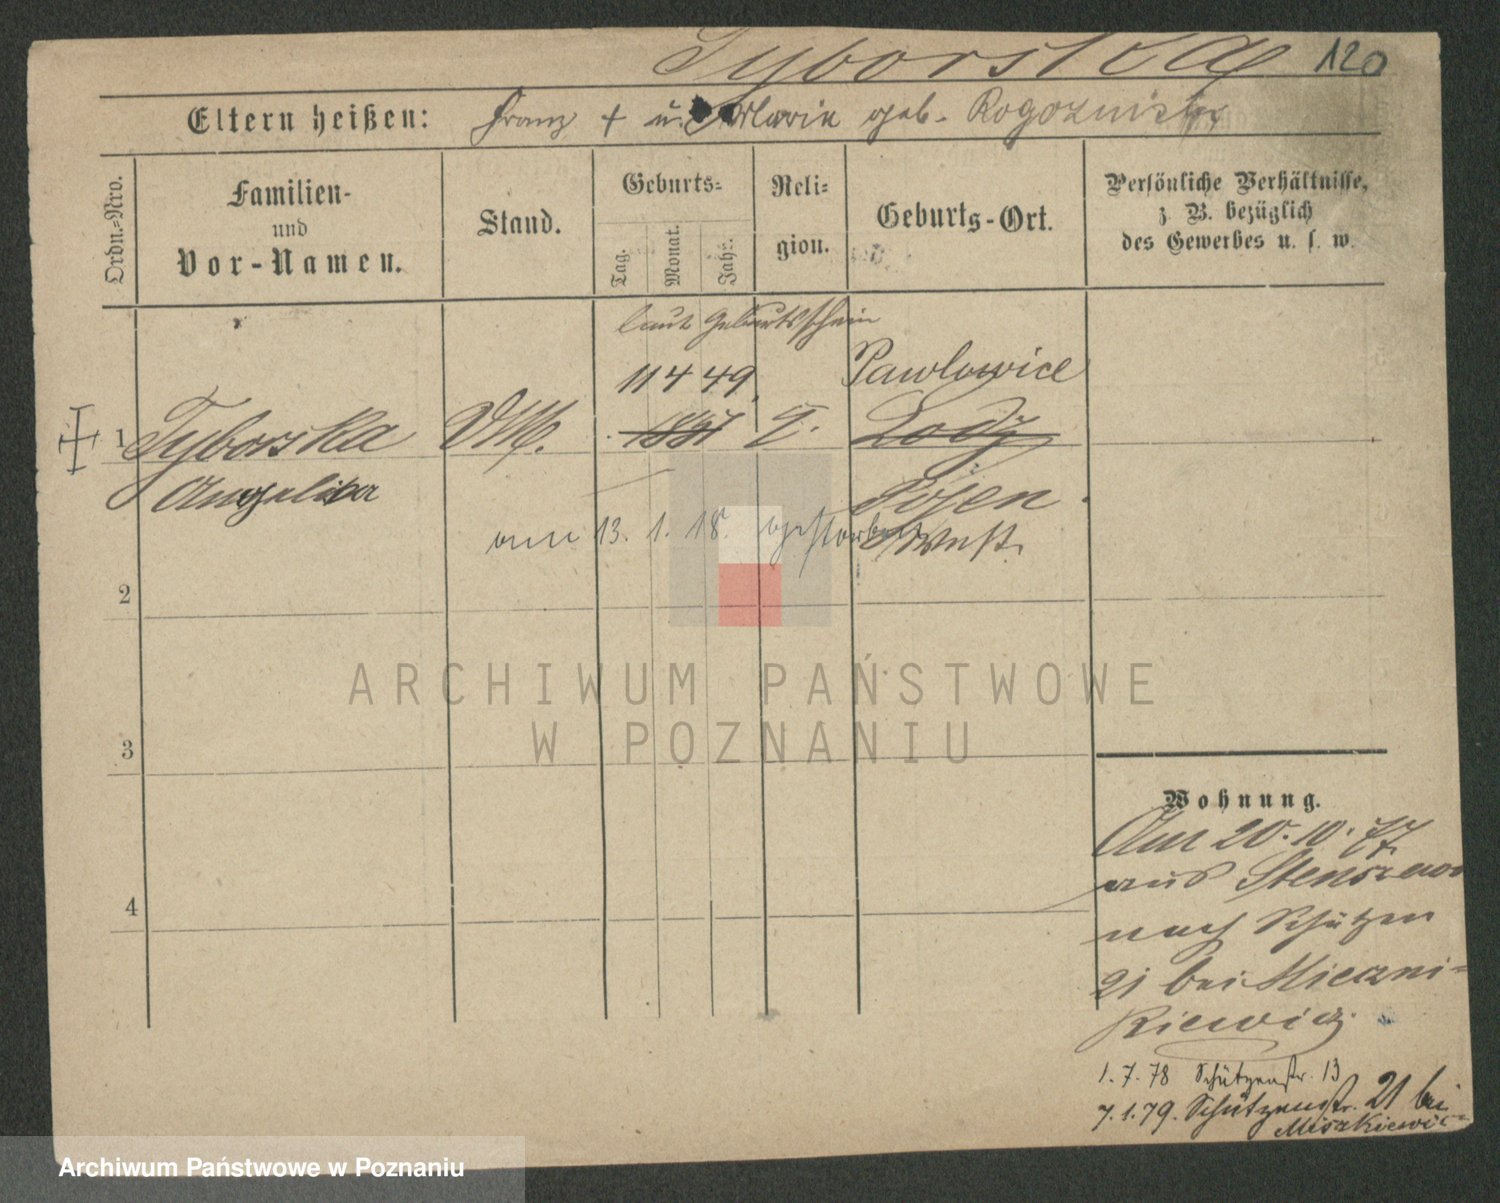 Tyborska 120
Eltern heißen: Franz + u. Marie geb. Rogoznicka
Ordn.=Nro.
Familien-
und
Vor-Namen.
Stand.
Geburts=
Tag.
Monat.
Jahr.
Reli=
gion.
Geburts-Ort.
Persönliche Verhältnisse,
z. B. bezüglich
des Gewerbes u. s. w.
laut Geburtsschein
11 4 49. Pawlowice
1 Tyborska 1851 Lodz
Angelika Posen
West.
am 13. 1. 18. gestorben
2
3
4
Wohnung.
Am 20. 10. 77
aus Stenszewo
nach Schützen
21 bei Mieczni=
kiewicz.
1. 7. 78 Schützenstr. 13
7. 1. 79. Schützenstr. 21 bei
Miszkiewicz
ARCHIWUM PAŃSTWOWE
W POZNANIU
Archiwum Państwowe w Poznaniu